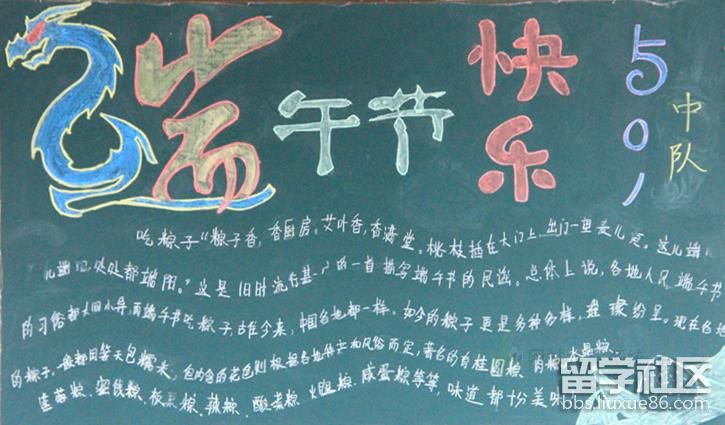 端午节快乐
501
中队
吃粽子“粽子香，香厨房。艾叶香，香满堂。桃枝插在大门上，出门一望麦儿黄。这儿端
儿端阳，处处都端阳。”这是旧时流行甚广的一首描写端午节的民谣。总体上说，各地人民端午节
的习俗都大同小异，而端午节吃粽子，古往今来，中国各地都一样。如今的粽子更是多种多样，璀璨纷呈。现在各地
的粽子，一般都用箬天包糯米，包内的花色则根据各地特产和风俗而定，著名的有桂圆粽、肉粽、水晶粽、
莲蓉粽、蜜饯粽、板栗粽、辣粽、酸菜粽、火腿粽、咸蛋粽等等，味道都十分美味
留学社区
bbs.liuxue86.com